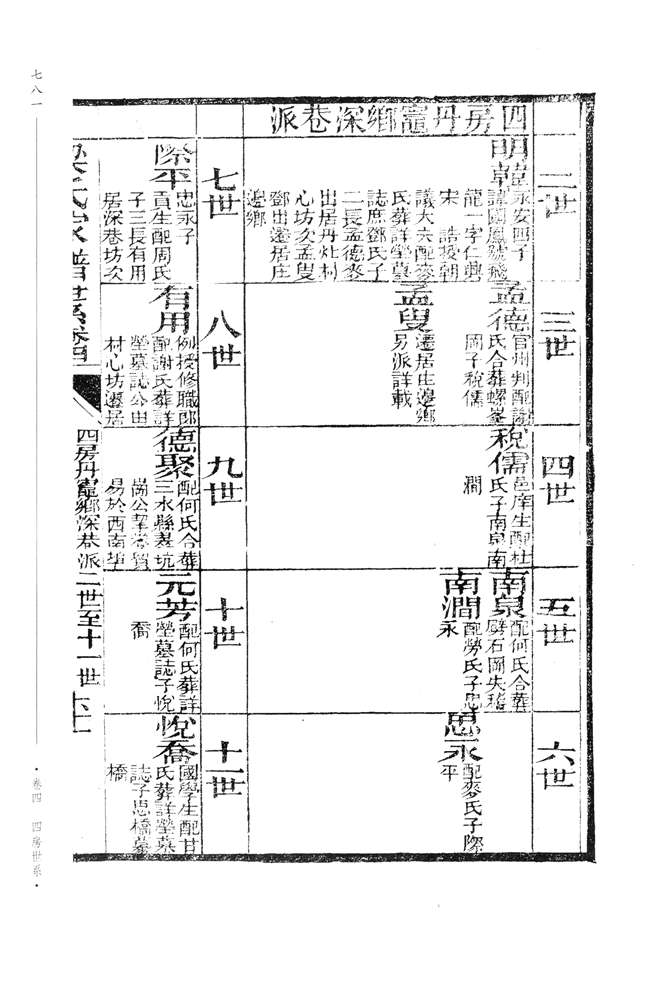 四房丹竈鄉深巷派
二世
明韓
永安四子
諱國鳳號飛
龍一字仁興
宋誥授朝
議大夫配麥
氏葬詳塋墓
誌庶鄧氏子
二長孟德麥
出居丹灶村
心坊次孟叟
鄧出遷居庄
邊鄉
三世
孟德
官州判配謝
氏合葬螺峯
岡子稅儒
孟叟
遷居庄邊鄉
另派詳載
四世
稅儒
邑庠生配杜
氏子南泉南
澗
五世
南泉
配何氏合葬
劈石岡失稽
南澗
配勞氏子思
永
六世
思永
配麥氏子際
平
七世
際平
思永子
貢生配周氏
子三長有用
居深巷坊次
村心坊遷居
八世
有用
例授修職郎
配謝氏葬詳
塋墓誌公由
九世
德聚
配何氏合葬
三水縣
十世
元芳
配何氏葬詳
塋墓誌子悅
喬
十一世
悅喬
國學生配甘
氏葬詳塋墓
誌子思橋
橋
氏家譜世系卷四
四房丹竈鄉深巷派二世至十一世
七八一
·卷四 四房世系·